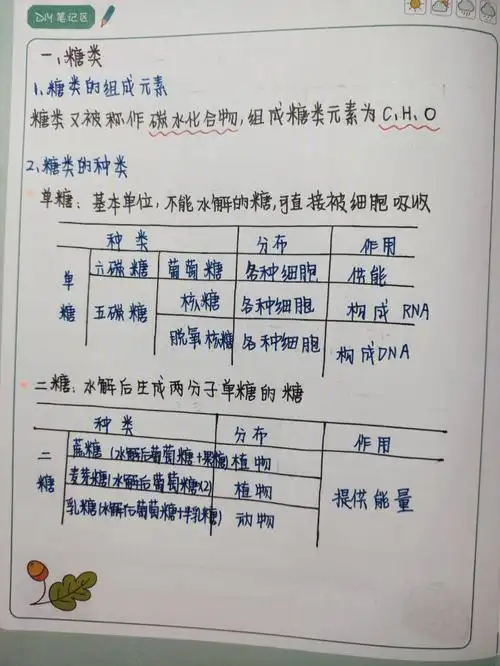 DIY 笔记区
一、糖类
1、糖类的组成元素
糖类又被称作碳水化合物,组成糖类元素为C、H、O
2、糖类的种类
单糖:基本单位,不能水解的糖,可直接被细胞吸收
种类 分布 作用
单糖 六碳糖 葡萄糖 各种细胞 供能
五碳糖 核糖 各种细胞 构成 RNA
脱氧核糖 各种细胞 构成DNA
二糖:水解后生成两分子单糖的糖
种类 分布 作用
二糖 蔗糖(水解后葡萄糖+果糖) 植物
麦芽糖(水解后葡萄糖×2) 植物 提供能量
乳糖(水解后葡萄糖+半乳糖) 动物